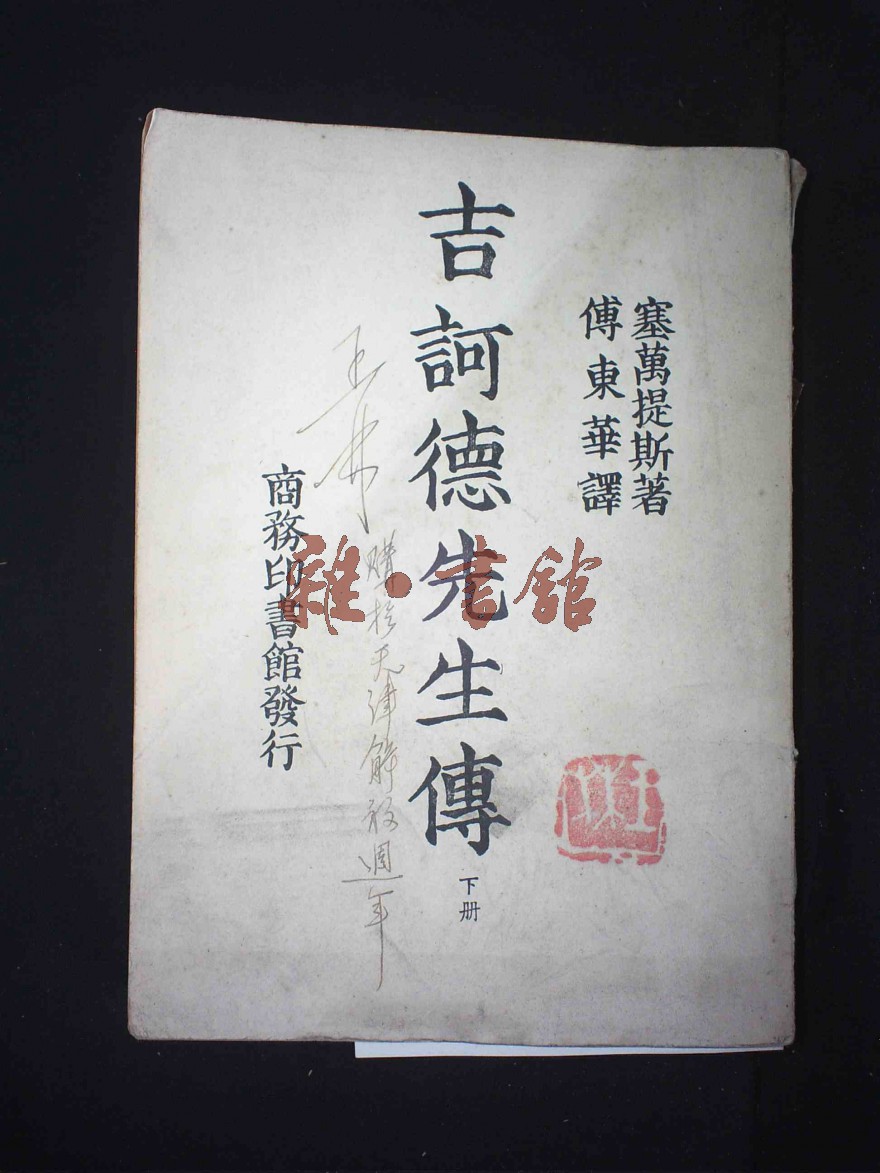 塞萬提斯著
傅東華譯
吉訶德先生傳
下册
購於天津解放週年
商務印書館發行
雜·書館